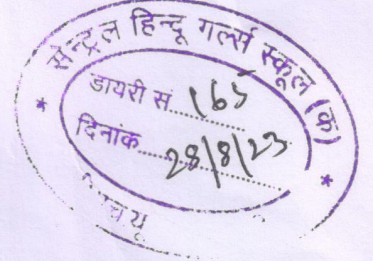 सेन्ट्रल हिन्दू गर्ल्स स्कूल (क)
डायरी सं. 165
दिनांक 28/8/23